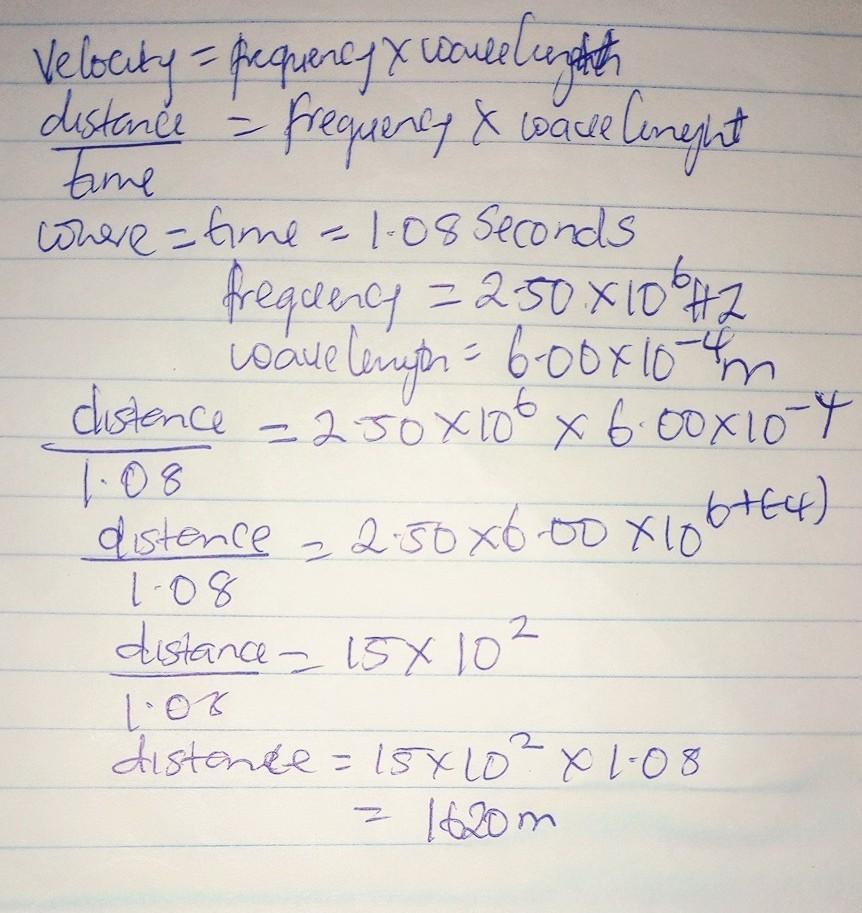 Velocity = frequency x wavelength
distance = frequency x wavelenght
time
where = time = 1.08 Seconds
frequency = 2.50 x 10^6 Hz
wavelength = 6.00 x 10^-4 m
distance = 2.50 x 10^6 x 6.00 x 10^-4
1.08
distance = 2.50 x 6.00 x 10^6+(-4)
1.08
distance = 15 x 10^2
1.08
distance = 15 x 10^2 x 1.08
= 1620m